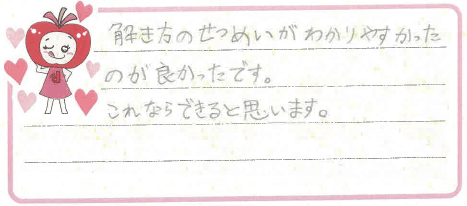 解き方のせつめいがわかりやすかった
のが良かったです。
これならできると思います。